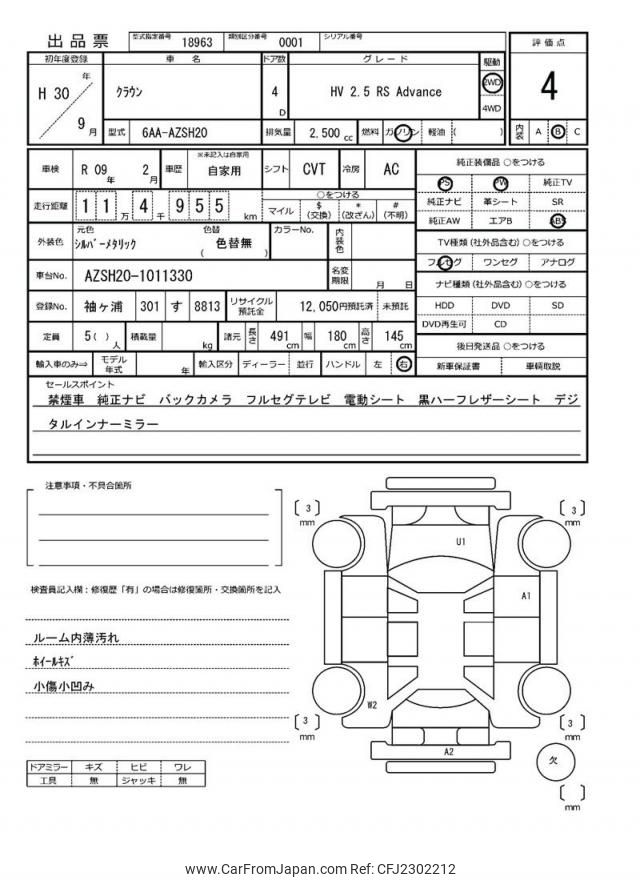 出品票 型式指定番号 18963 類別区分番号 0001 シリアル番号
評価点
4
内装 A B C
初年度登録 車名 ドア数 グレード 駆動
H 30 年 9 月
クラウン
4 D
HV 2.5 RS Advance
2WD
4WD
型式 6AA-AZSH20 排気量 2,500 cc 燃料 ガソリン 軽油 ( )
車検 R 09 年 2 月 車歴 ※未記入は自家用 自家用 シフト CVT 冷房 AC
走行距離 1 1 万 4 千 9 5 5 km
○をつける
マイル $ (交換) * (改ざん) # (不明)
外装色 元色 シルバーメタリック 色替 ( 色替無 ) カラーNo. 内装色
車台No. AZSH20-1011330 名変期限 月 日
登録No. 袖ヶ浦 301 す 8813 リサイクル預託金 12,050円預託済 未預託
定員 5 ( ) 人 積載量 kg 諸元 長さ 491 cm 幅 180 cm 高さ 145 cm
輸入車のみ⇒ モデル年式 年 輸入区分 ディーラー 並行 ハンドル 左 右
純正装備品 ○をつける
PS PW 純正TV
純正ナビ 革シート SR
純正AW エアB ABS
TV種類 (社外品含む) ○をつける
フルセグ ワンセグ アナログ
ナビ種類 (社外品含む) ○をつける
HDD DVD SD
DVD再生可 CD
後日発送品 ○をつける
新車保証書 車輌取説
セールスポイント
禁煙車 純正ナビ バックカメラ フルセグテレビ 電動シート 黒ハーフレザーシート デジ
タルインナーミラー
注意事項・不具合箇所
検査員記入欄：修復歴「有」の場合は修復箇所・交換箇所を記入
ルーム内薄汚れ
ホイールキズ
小傷小凹み
ドアミラー キズ ヒビ ワレ
工具 無 ジャッキ 無
[ 3 ] mm
[ 3 ] mm
U1
A1
W2
A2
[ 3 ] mm
[ 3 ] mm
欠
[ ] mm
www.CarFromJapan.com Ref: CFJ2302212